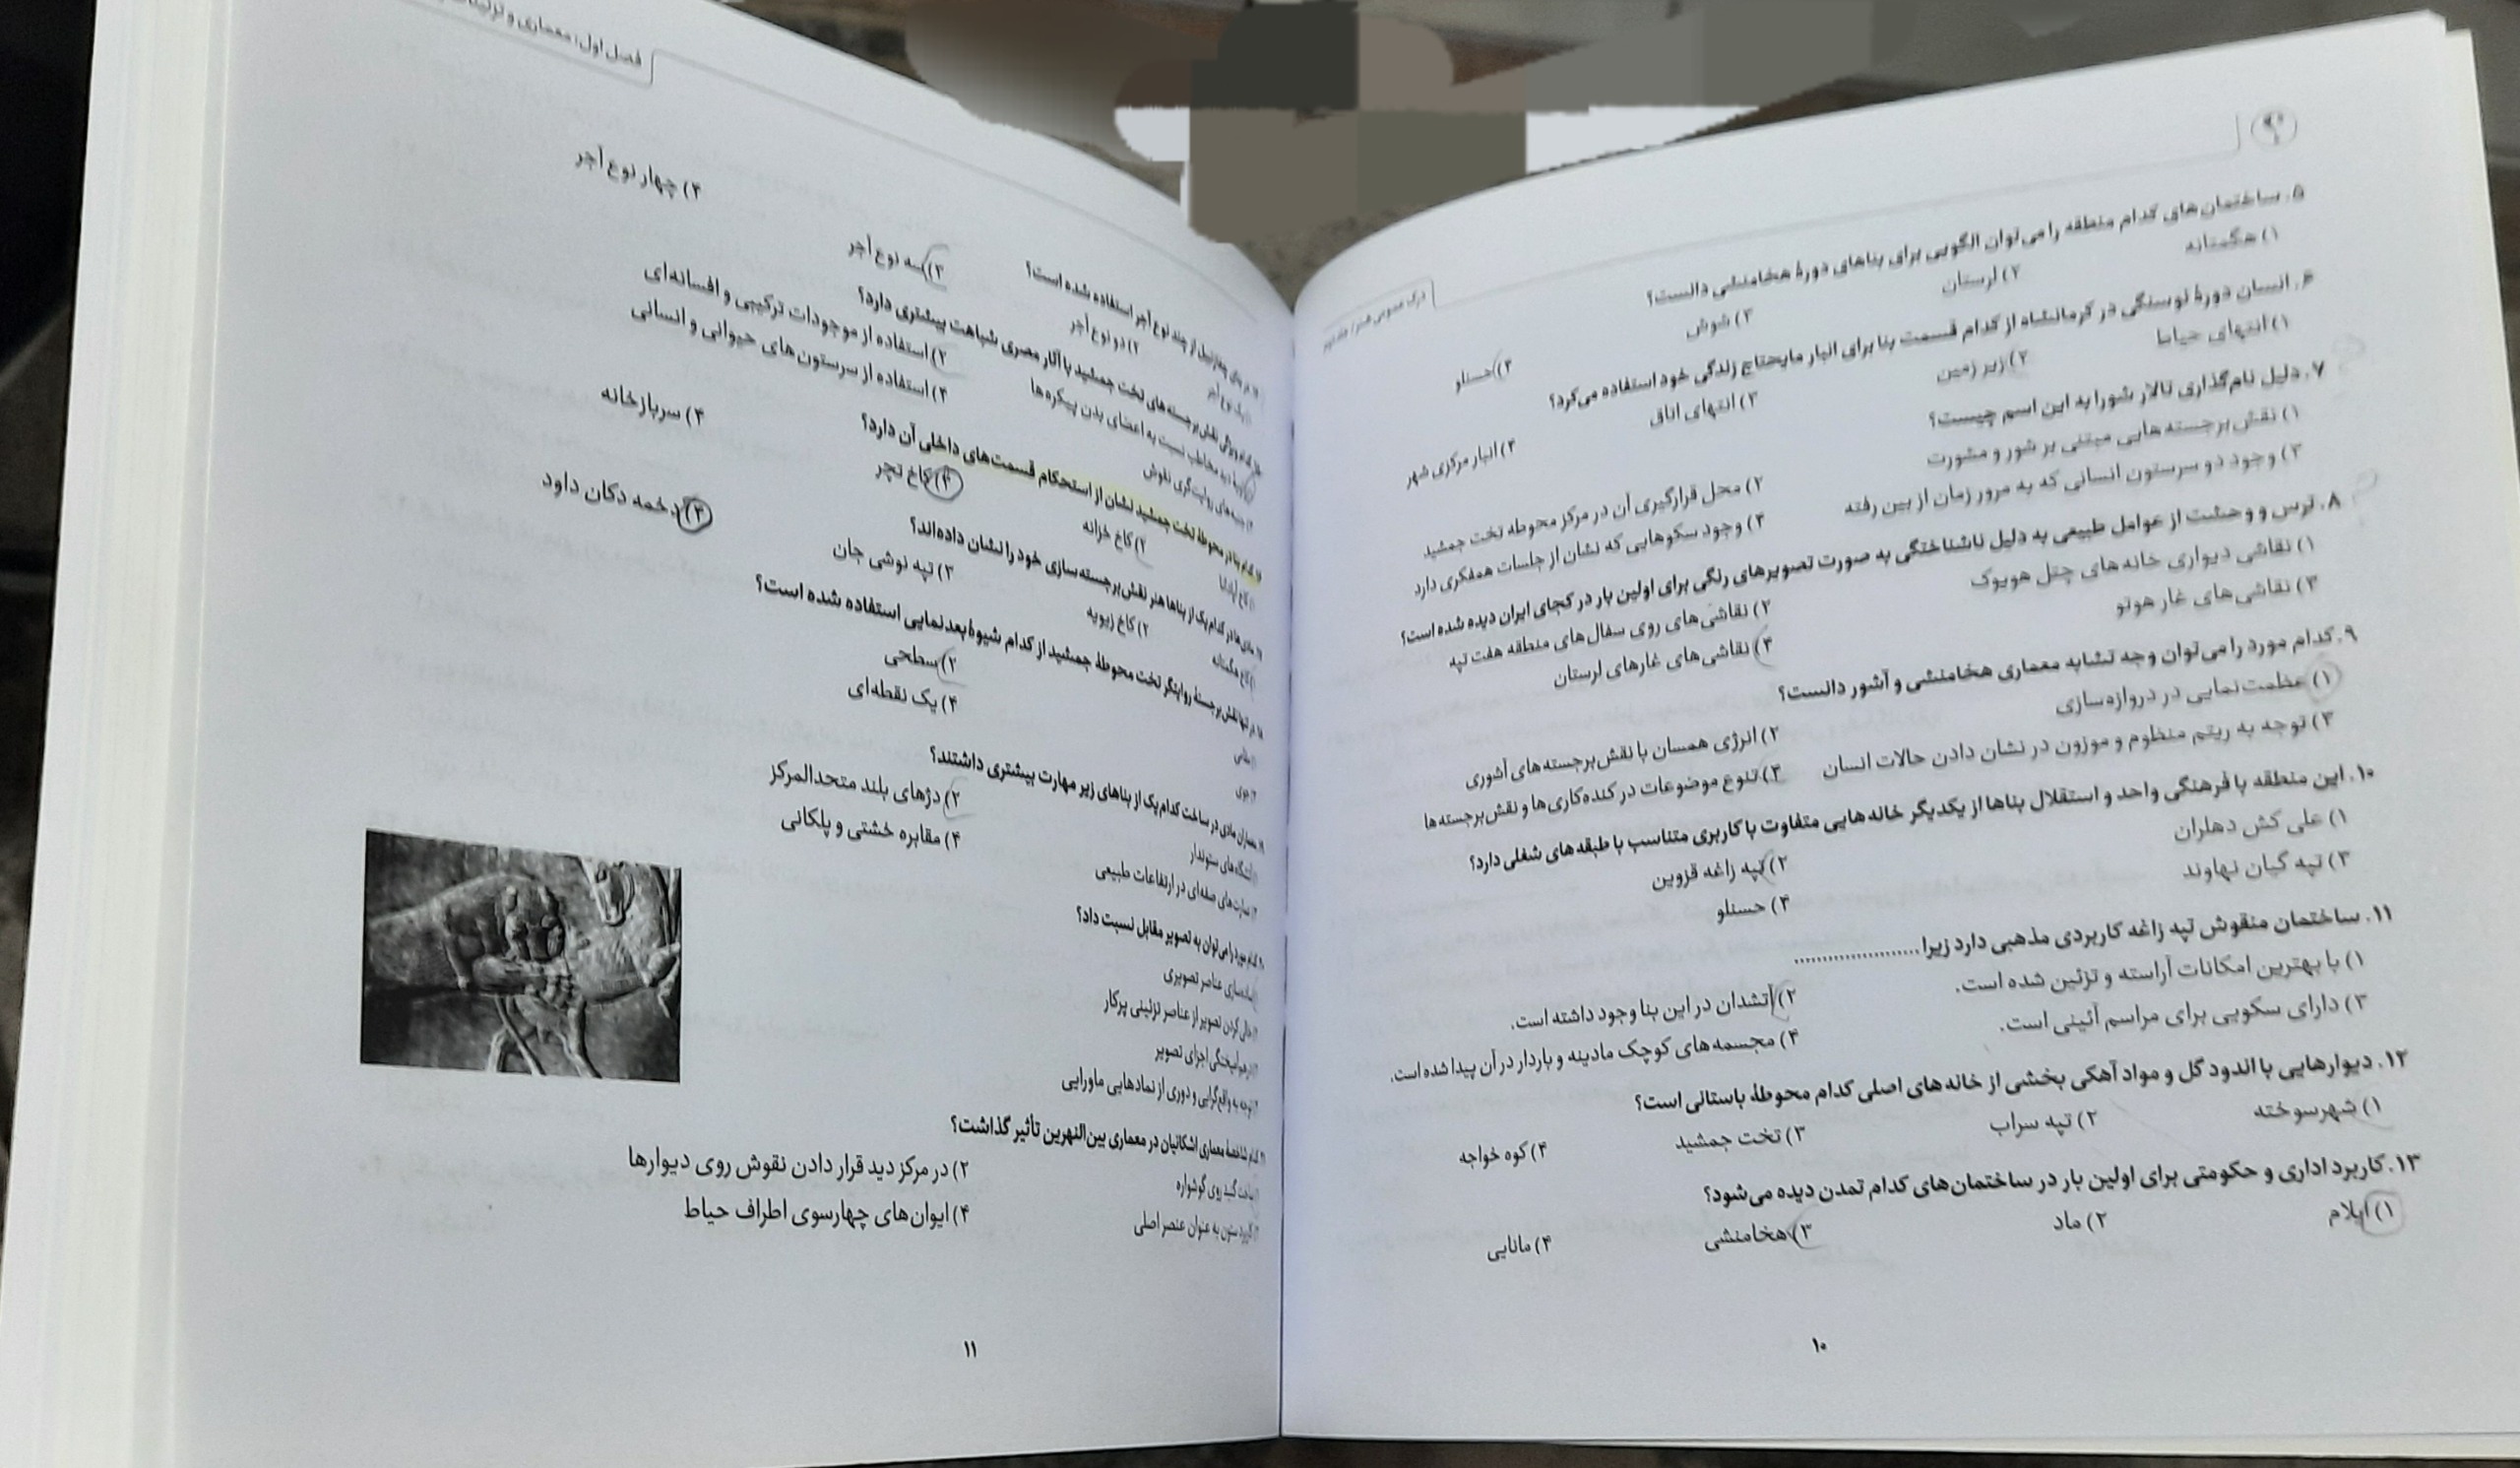 درک عمومی هنر/ جلد دوم
۵. ساختمان‌های کدام منطقه را می‌توان الگویی برای بناهای دورهٔ هخامنشی دانست؟
۱) هگمتانه
۲) لرستان
۳) شوش
۴) حسنلو
۶. انسان دورهٔ نوسنگی در کرمانشاه از کدام قسمت بنا برای انبار مایحتاج زندگی خود استفاده می‌کرد؟
۱) انتهای حیاط
۲) زیر زمین
۳) انتهای اتاق
۴) انبار مرکزی شهر
۷. دلیل نام‌گذاری تالار شورا به این اسم چیست؟
۱) نقش‌برجسته‌هایی مبتنی بر شور و مشورت
۲) محل قرارگیری آن در مرکز محوطه تخت جمشید
۳) وجود دو سرستون انسانی که به مرور زمان از بین رفته
۴) وجود سکوهایی که نشان از جلسات همفکری دارد
۸. ترس و وحشت از عوامل طبیعی به دلیل ناشناختگی به صورت تصویرهای رنگی برای اولین بار در کجای ایران دیده شده است؟
۱) نقاشی دیواری خانه‌های چتل هویوک
۲) نقاشی‌های روی سفال‌های منطقه هفت تپه
۳) نقاشی‌های غار هوتو
۴) نقاشی‌های غارهای لرستان
۹. کدام مورد را می‌توان وجه تشابه معماری هخامنشی و آشور دانست؟
۱) عظمت‌نمایی در دروازه‌سازی
۲) انرژی همسان با نقش‌برجسته‌های آشوری
۳) توجه به ریتم منظوم و موزون در نشان دادن حالات انسان
۴) تنوع موضوعات در کنده‌کاری‌ها و نقش‌برجسته‌ها
۱۰. این منطقه با فرهنگی واحد و استقلال بناها از یکدیگر خانه‌هایی متفاوت با کاربری متناسب با طبقه‌های شغلی دارد؟
۱) علی کش دهلران
۲) تپه زاغه قزوین
۳) تپه گیان نهاوند
۴) حسنلو
۱۱. ساختمان منقوش تپه زاغه کاربردی مذهبی دارد زیرا ......................
۱) با بهترین امکانات آراسته و تزئین شده است.
۲) آتشدان در این بنا وجود داشته است.
۳) دارای سکویی برای مراسم آئینی است.
۴) مجسمه‌های کوچک مادینه و باردار در آن پیدا شده است.
۱۲. دیوارهایی با اندود گل و مواد آهکی بخشی از خانه‌های اصلی کدام محوطهٔ باستانی است؟
۱) شهرسوخته
۲) تپه سراب
۳) تخت جمشید
۴) کوه خواجه
۱۳. کاربرد اداری و حکومتی برای اولین بار در ساختمان‌های کدام تمدن دیده می‌شود؟
۱) ایلام
۲) ماد
۳) هخامنشی
۴) مانایی
۱۰
فصل اول: معماری و تزئینات
۱۴. در بنای چغازنبیل از چند نوع آجر استفاده شده است؟
۱) یک نوع آجر
۲) دو نوع آجر
۳) سه نوع آجر
۴) چهار نوع آجر
۱۵. کدام ویژگی نقش‌برجسته‌های تخت جمشید با آثار مصری شباهت بیشتری دارد؟
۱) زاویهٔ دید مخاطب نسبت به اعضای بدن پیکره‌ها
۲) استفاده از موجودات ترکیبی و افسانه‌ای
۳) جنبه‌های روایت‌گری نقوش
۴) استفاده از سرستون‌های حیوانی و انسانی
۱۶. کدام بنا در محوطهٔ تخت جمشید نشان از استحکام قسمت‌های داخلی آن دارد؟
۱) کاخ آپادانا
۲) کاخ خزانه
۳) کاخ تچر
۴) سربازخانه
۱۷. مادی‌ها در کدام یک از بناها هنر نقش‌برجسته‌سازی خود را نشان داده‌اند؟
۱) کاخ هگمتانه
۲) کاخ زیویه
۳) تپه نوشی جان
۴) دخمه دکان داود
۱۸. در تنها نقش‌برجستهٔ روایتگر تخت محوطهٔ جمشید از کدام شیوهٔ بعدنمایی استفاده شده است؟
۱) مقامی
۲) سطحی
۳) جوی
۴) یک نقطه‌ای
۱۹. معماران مادی در ساخت کدام یک از بناهای زیر مهارت بیشتری داشتند؟
۱) آتشگاه‌های ستوندار
۲) دژهای بلند متحدالمرکز
۳) عمارت‌های صفه‌ای در ارتفاعات طبیعی
۴) مقابره خشتی و پلکانی
۲۰. کدام مورد را می‌توان به تصویر مقابل نسبت داد؟
۱) ساده‌سازی عناصر تصویری
۲) خالی کردن تصویر از عناصر تزئینی پرکار
۳) درهم‌آمیختگی اجزای تصویر
۴) توجه به واقع‌گرایی و دوری از نمادهایی ماورایی
۲۱. کدام شاخصهٔ معماری اشکانیان در معماری بین‌النهرین تأثیر گذاشت؟
۱) ساخت گنبد روی گوشواره
۲) در مرکز دید قرار دادن نقوش روی دیوارها
۳) کاربرد ستون به عنوان عنصر اصلی
۴) ایوان‌های چهارسوی اطراف حیاط
۱۱